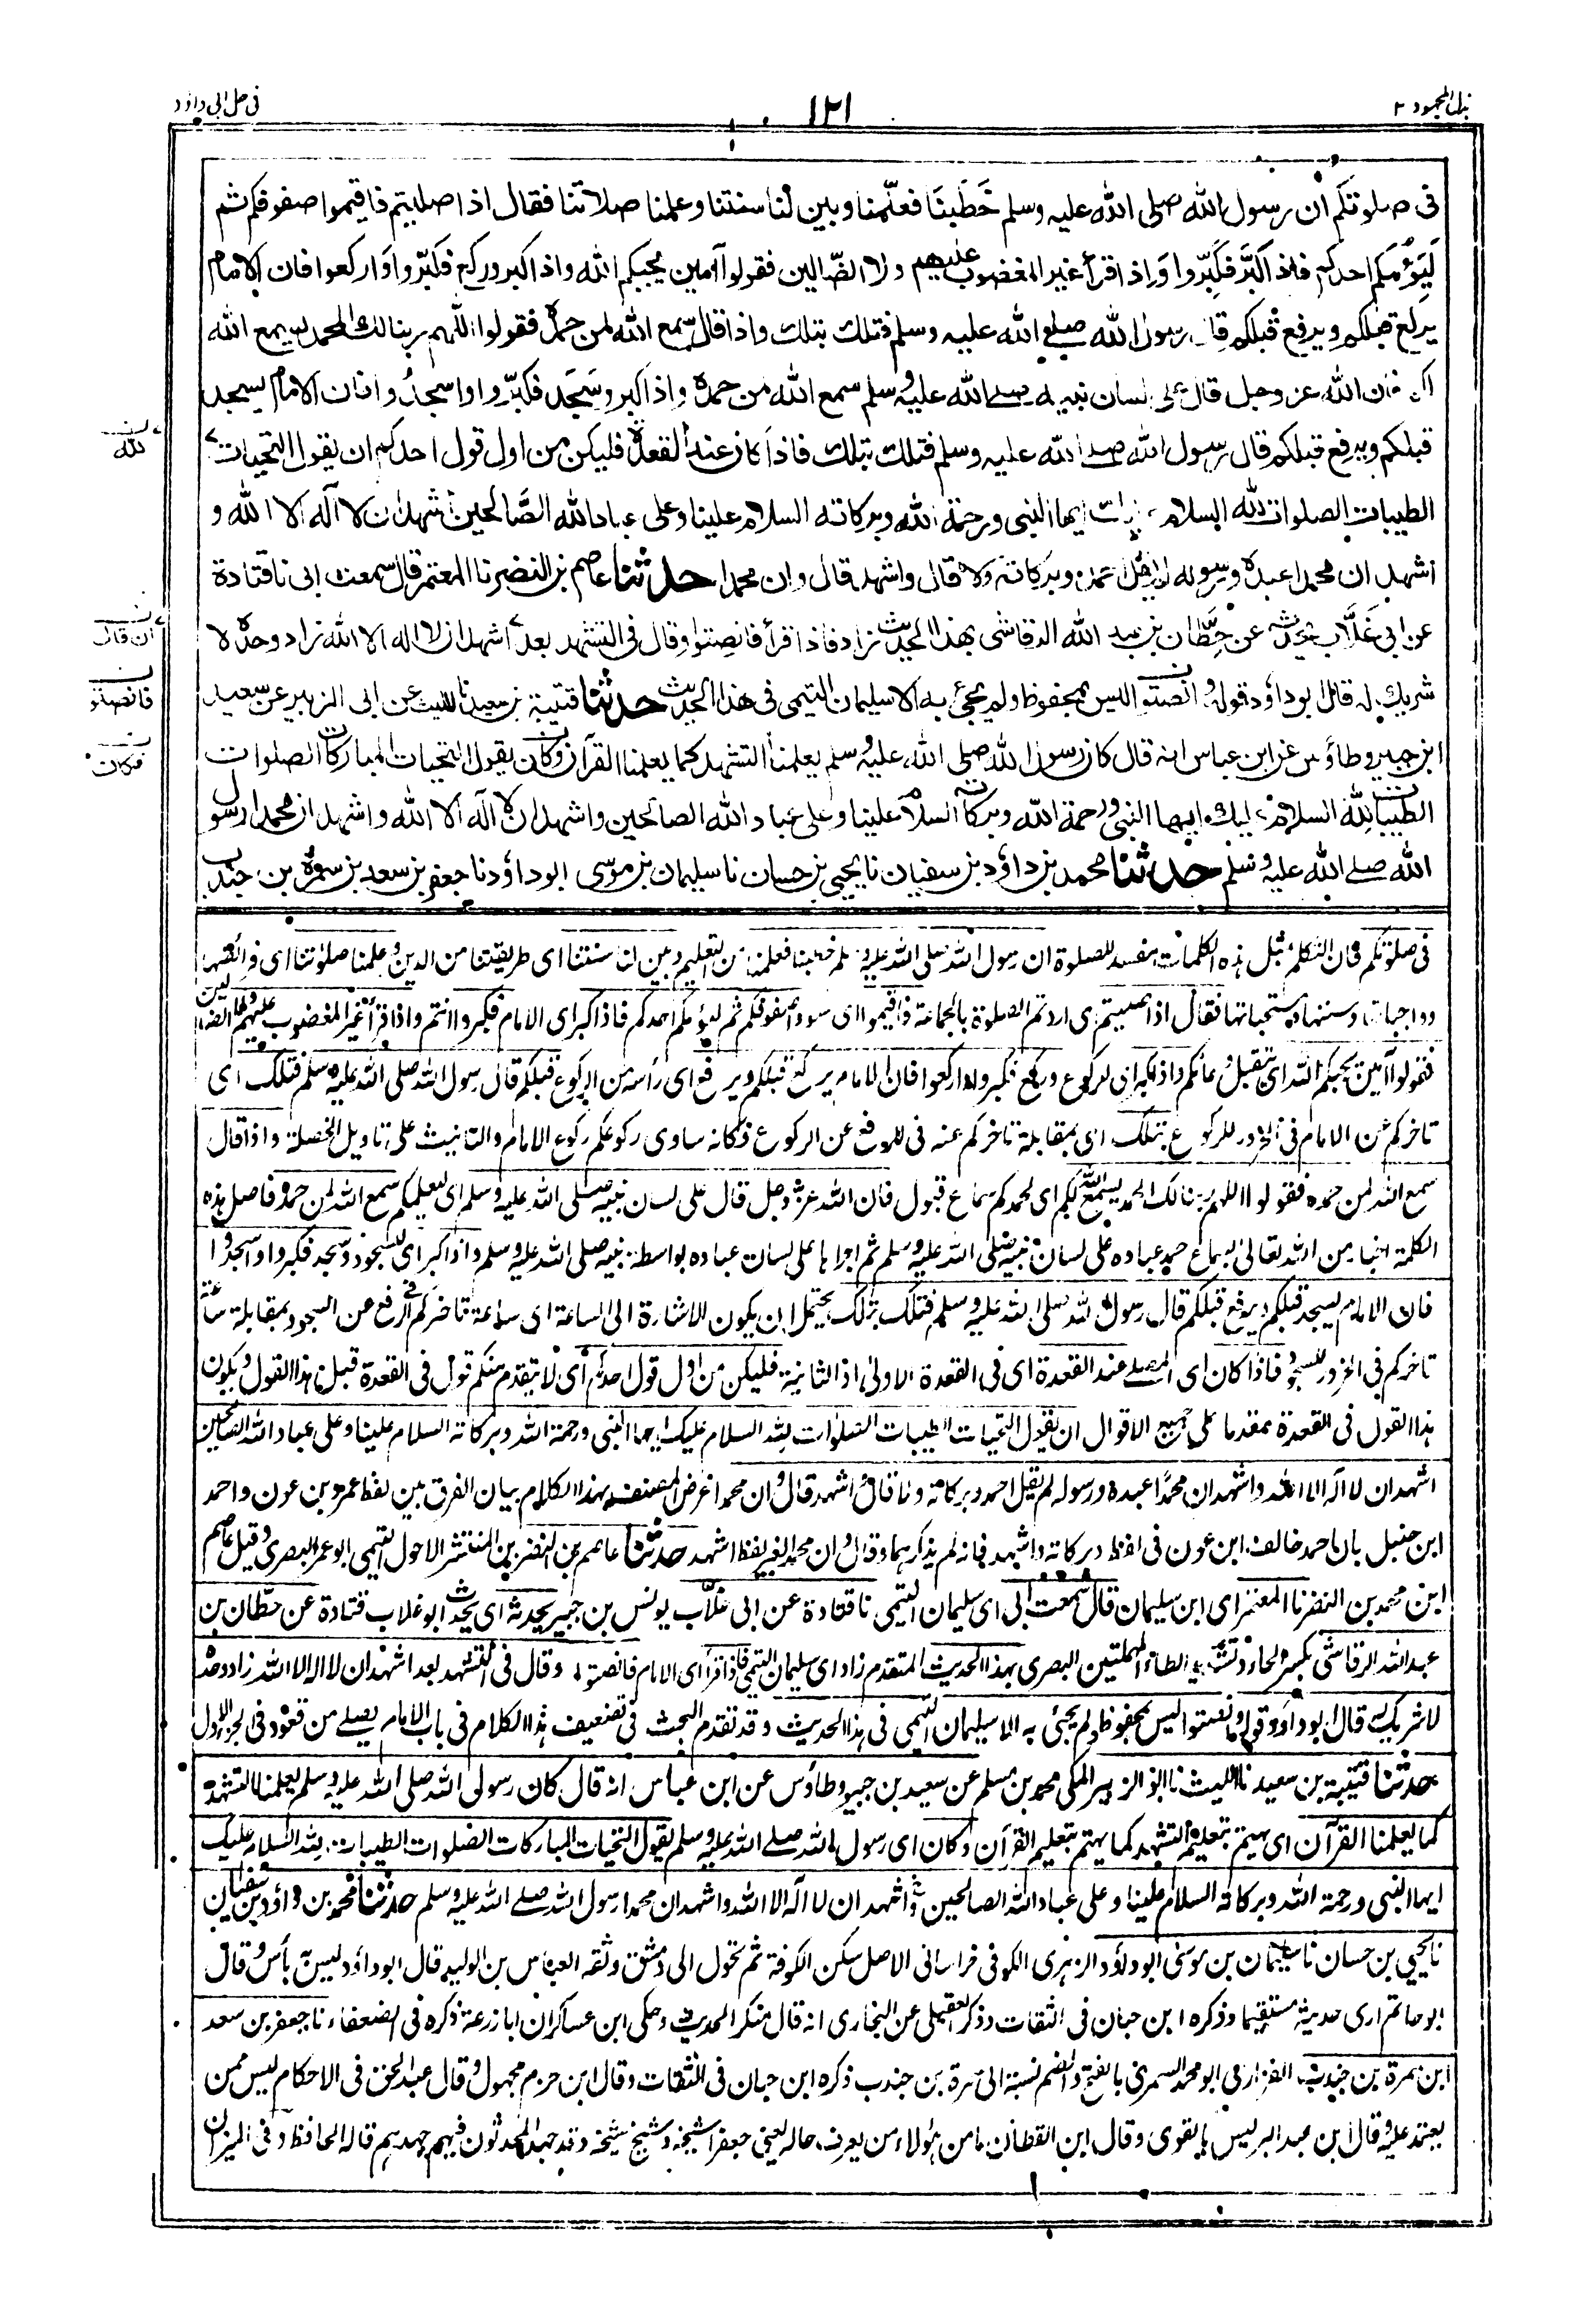 بذل المجهود ۲
۱۲۱
فی حل ابی داؤد
فی صلوتکم ان رسول الله صلی الله علیه وسلم خَطَبَنَا فعلّمنا وبین لنا سنتنا وعلمنا صلاتنا فقال اذا صلیتم فاقیموا صفوفکم ثم
لیَؤُمکم احدکم فاذا کَبَّر فکَبِّروا وَاِذا قرأ غیر المغضوب علیهم ولا الضّالین فقولوا آمین یجبکم الله واذا کبر ورکع فکبّروا وارکعوا فان الامام
یرکع قبلکم ویرفع قبلکم قال رسول الله صلے الله علیه وسلم فتلک بتلک واذا قال سمع الله لمن حمده فقولوا اللهم ربنا لک الحمد یسمع الله
لکم فان الله عز وجل قال علی لسان نبیه صلے الله علیه وسلم سمع الله من حمده واذا کبر وسَجَد فکبّروا واسجدُوا فان الامام یسجد
قبلکم ویرفع قبلکم قال رسول الله صلے الله علیه وسلم فتلک بتلک فاذا کان عند القعدة فلیکن من اول قول احدکم ان یقول التحیات
الطیبات الصلوات لله السلام علیک ایها النبی ورحمة الله وبرکاته السلام علینا وعلی عباد الله الصَّالحین اشهد ان لا اله الا الله و
اشهد ان محمدا عبده ورسوله لم یقل احمد وبرکاته ولا قال واشهد قال وان محمدا حدثنا عاصم بن النضر نا المعتمر قال سمعت ابی نا قتادة
عن ابی غَلَّاب یحدثه عن حِطَّان بن عبد الله الرقاشی بهذا الحدیث زاد فاذا قرأ فانصِتوا وقال فی التشهد بعد اشهد ان لا اله الا الله زاد وحده لا
شریک له قال ابوداؤد قوله وانصتوا لیس بمحفوظ ولم یجئ به الا سلیمان التیمی فی هذا الحدیث حدثنا قتیبة بن سعید نا اللیث عن ابی الزبیر عن سعید
ابن جبیر وطاؤس عن ابن عباس انه قال کان رسول الله صلی الله علیه وسلم یعلمنا التشهد کما یعلمنا القرآن وکان یقول التحیات المبارکات الصلوات
الطیبات لله السلام علیک ایها النبی ورحمة الله وبرکاته السلام علینا وعلی عباد الله الصالحین واشهد ان لا اله الا الله واشهد ان محمدا رسول
الله صلے الله علیه وسلم حدثنا محمد بن داؤد بن سفیان نا یحیی بن حسان نا سلیمان بن موسی ابوداؤد نا جعفر بن سعد بن سمرة بن جندب
لله
ان قال
فانصتوا
فکان
فی صلوتکم فان التکلم بمثل هذه الکلمات مفسد للصلوة ان رسول الله صلی الله علیه وسلم خطبنا فعلمنا من التعلیم وبین لنا سنتنا ای طریقتنا من الدین وعلمنا صلوتنا ای فرائضها
وواجباتها وسننها ومستحباتها فقال اذا صلیتم ای اردتم الصلوة بالجماعة فاقیموا ای سووا صفوفکم ثم لیؤمکم احدکم فاذا کبر ای الامام فکبروا انتم واذا قرأ غیر المغضوب علیهم ولا الضالین
فقولوا آمین یجبکم الله ای یتقبل دعائکم واذا کبر ای للرکوع ورکع فکبروا وارکعوا فان الامام یرکع قبلکم ویرفع ای رأسه من الرکوع قبلکم قال رسول الله صلی الله علیه وسلم فتلک ای
تاخرکم عن الامام فی الخرور للرکوع بتلک ای بمقابلة تاخرکم عنه فی الرفع عن الرکوع فکانه ساوی رکوعکم رکوع الامام والتانیث علی تاویل الخصلة واذا قال
سمع الله لمن حمده فقولوا اللهم ربنا لک الحمد یسمع الله لکم ای لحمدکم سماع قبول فان الله عز وجل قال علی لسان نبیه صلی الله علیه وسلم ای لیعلمکم سمع الله لمن حمده فاصل هذه
الکلمة اخبار من الله تعالی بسماع حمد عباده علی لسان نبیه صلی الله علیه وسلم ثم اجراها علی لسان عباده بواسطة نبیه صلی الله علیه وسلم واذا کبر ای للسجود وسجد فکبروا واسجدوا
فان الامام یسجد قبلکم ویرفع قبلکم قال رسول الله صلی الله علیه وسلم فتلک بتلک یحتمل ان یکون الاشارة الی الساعة ای ساعة تاخرکم فی الرفع عن السجود بمقابلة ساعة
تاخرکم فی الخرور للسجود فاذا کان ای المصلے عند القعدة ای فی القعدة الاولی اذ الثانیة فلیکن من اول قول احدکم ای لا یتقدم منکم قول فی القعدة قبل هذا القول ویکون
هذا القول فی القعدة مقدما علی جمیع الاقوال ان یقول التحیات الطیبات الصلوات لله السلام علیک ایها النبی ورحمة الله وبرکاته السلام علینا وعلی عباد الله الصالحین
اشهد ان لا اله الا الله واشهد ان محمدا عبده ورسوله لم یقل احمد وبرکاته ولا قال اشهد قال وان محمدا غرض المصنف بهذا الکلام بیان الفرق بین لفظ عمرو بن عون واحمد
ابن حنبل بان احمد خالف ابن عون فی لفظ وبرکاته واشهد فانه لم یذکرهما وقال وان محمدا بغیر لفظ اشهد حدثنا عاصم بن النضر بن المنتشر الاحول التیمی ابو عمر البصری وقیل عاصم
ابن محمد بن النضر نا المعتمر ای ابن سلیمان قال سمعت ابی ای سلیمان التیمی نا قتادة عن ابی غلّاب یونس بن جبیر یحدثه ای یحدث ابو غلاب قتادة عن حطّان بن
عبد الله الرقاشی بکسر الحاء وتشدید الطاء المهملتین البصری بهذا الحدیث المتقدم زاد ای سلیمان التیمی فاذا قرأ ای الامام فانصتوا وقال فی التشهد بعد اشهد ان لا اله الا الله زاد وحده
لا شریک له قال ابوداؤد وقوله وانصتوا لیس بمحفوظ ولم یجئ به الا سلیمان التیمی فی هذا الحدیث وقد تقدم البحث فی تضعیف هذا الکلام فی باب الامام یصلے من قعود فی الجزء الاول
حدثنا قتیبة بن سعید نا اللیث نا ابو الزبیر المکی محمد بن مسلم عن سعید بن جبیر وطاؤس عن ابن عباس انه قال کان رسول الله صلی الله علیه وسلم یعلمنا التشهد
کما یعلمنا القرآن ای یهتم بتعلیم التشهد کما یهتم بتعلیم القرآن وکان ای رسول الله صلے الله علیه وسلم یقول التحیات المبارکات الصلوات الطیبات لله السلام علیک
ایها النبی ورحمة الله وبرکاته السلام علینا وعلی عباد الله الصالحین واشهد ان لا اله الا الله واشهد ان محمدا رسول الله صلے الله علیه وسلم حدثنا محمد بن داؤد بن سفیان
نا یحیی بن حسان نا سلیمان بن موسی ابو داؤد الزهری الکوفی خراسانی الاصل سکن الکوفة ثم تحول الی دمشق وثقه العباس بن الولید قال ابو داؤد لیس به بأس وقال
ابو حاتم اری حدیثه مستقیما وذکره ابن حبان فی الثقات وذکر العقیلی عن البخاری انه قال منکر الحدیث وحکی ابن عساکر ان ابا زرعة ذکره فی الضعفاء نا جعفر بن سعد
ابن سمرة بن جندب الفزاری ابو محمد السمری بالفتح والضم نسبة الی سمرة بن جندب ذکره ابن حبان فی الثقات وقال ابن حزم مجهول وقال عبد الحق فی الاحکام لیس ممن
یعتمد علیه وقال ابن عبد البر لیس بالقوی وقال ابن القطان ما من هؤلاء من یعرف حاله یعنی جعفرا وشیخه وشیخ شیخه وقد جهد المحدثون فیهم جهدهم قاله الحافظ وفی المیزان